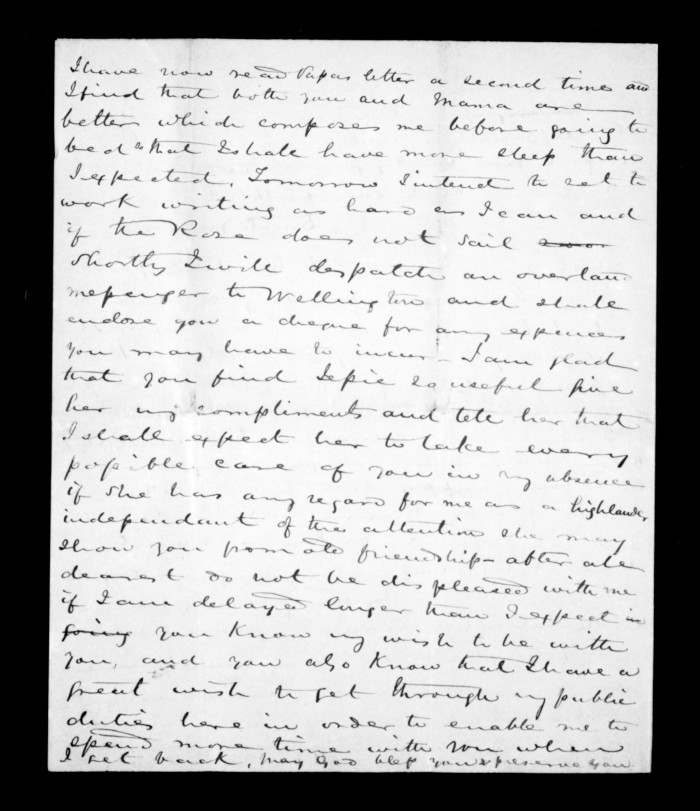 I have now read Papas letter a second time and
I find that both you and Mama are
better which composes me before going to
bed & that I shall have more sleep than
I expected. Tomorrow I intend to set to
work writing as hard as I can and
if the Rose does not sail soon
shortly I will despatch an overland
messenger to Wellington and shall
enclose you a cheque for any expences
you may have to incur - I am glad
that you find Jessie so useful give
her my compliments and tell her that
I shall expect her to take every
possible care of you in my absence
if she has any regard for me as a highlander
independant of the attention she may
show you from old friendship - after all
dearest do not be displeased with me
if I am delayed longer than I expect in
going you know my wish to be with
you, and you also know that I have a
great wish to get through my public
duties here in order to enable me to
spend more time with you when
I get back, may God bless you & preserve you